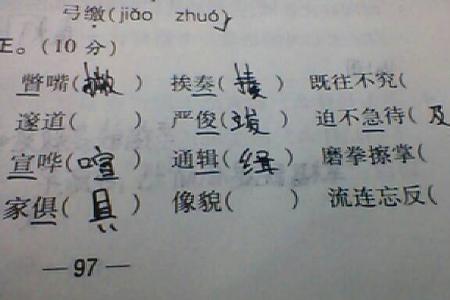 弓缴(jiǎo zhuó)
正。(10分)
瞥嘴(撇) 挨奏(揍) 既往不究(
邃道( ) 严俊(峻) 迫不急待(及
宣哗(喧) 通辑(缉) 磨拳擦掌(
家俱(具) 像貌( ) 流连忘反(
—97—